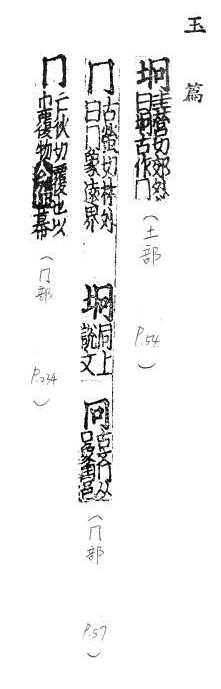 玉篇
坰 圭營切郊外曰坰古作冂 (土部) P.54
冂 古螢切林外曰冂象遠界 坰 同上說文 冋 古文冂从口象國邑 (冂部) P.57
冖 亡狄切覆也以巾覆物今為冪 (冖部) P.234